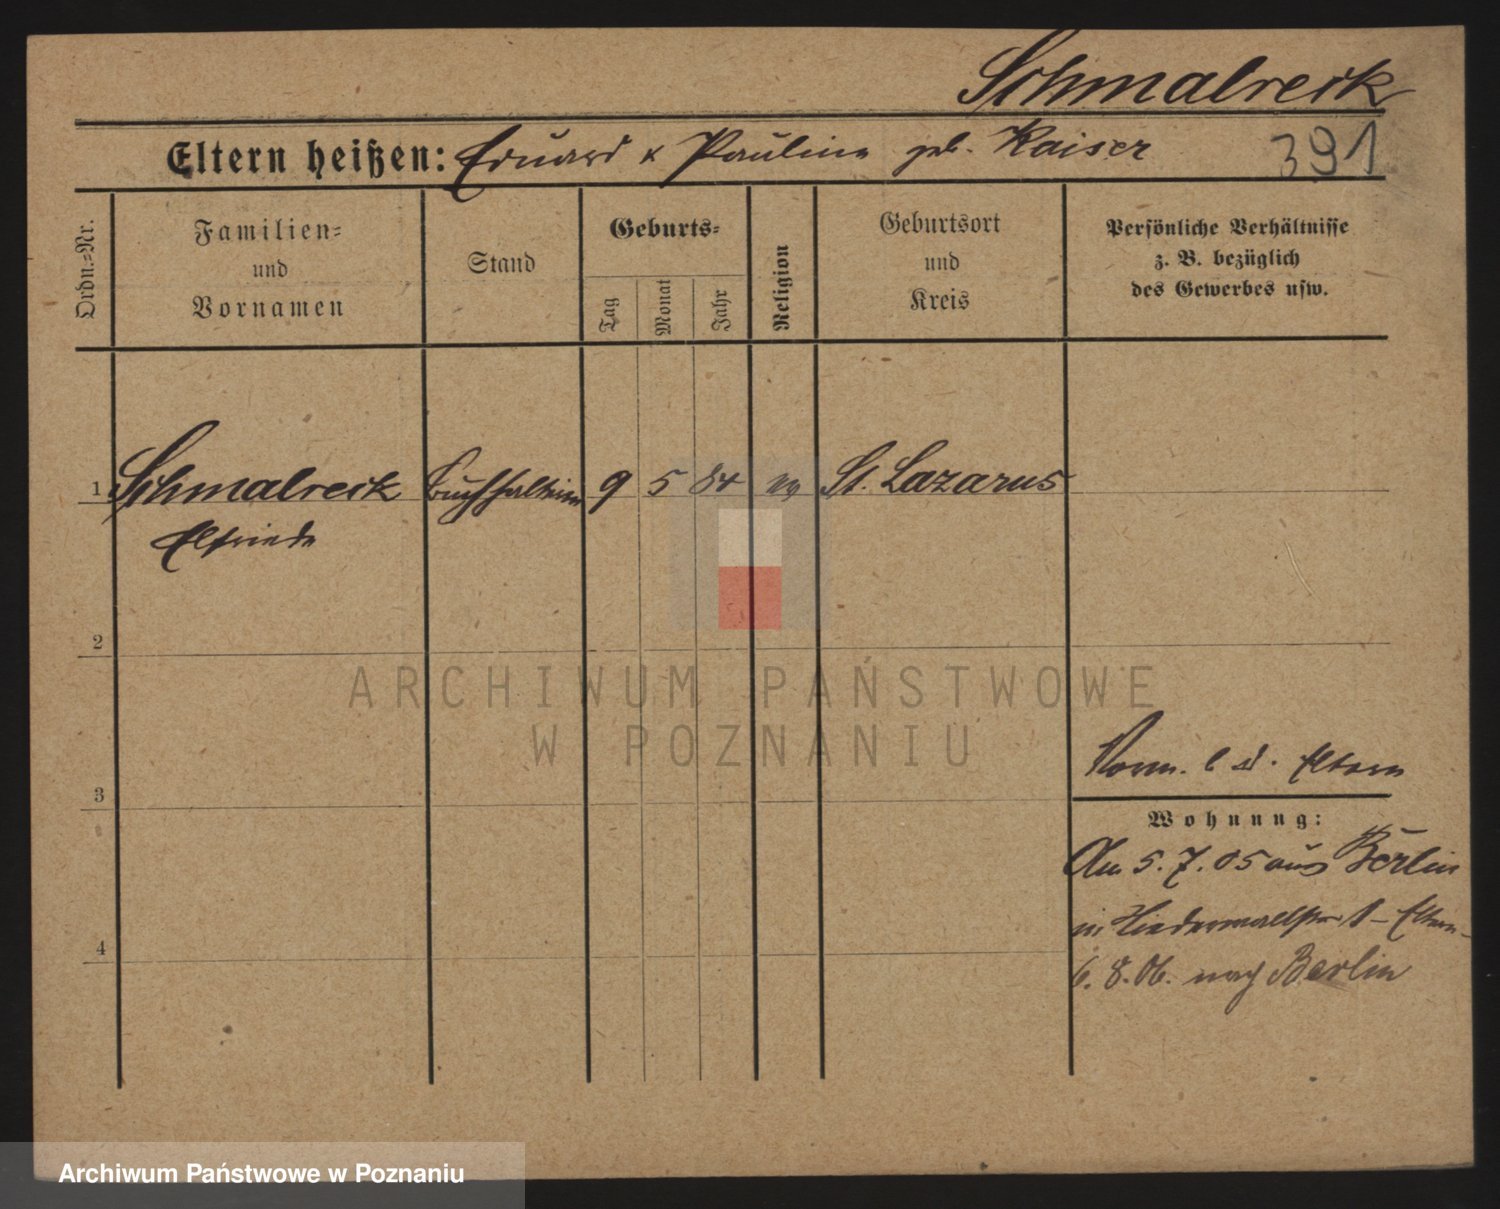 Schmalreck
Eltern heißen: Eduard & Pauline geb. Kaiser 391
Ordn.-Nr.
Familien-
und
Vornamen
Stand
Geburts-
Tag
Monat
Jahr
Religion
Geburtsort
und
Kreis
Persönliche Verhältnisse
z. B. bezüglich
des Gewerbes usw.
1 Schmalreck Buchhalterin 9 5 84 ev St. Lazarus
Elfriede
2
ARCHIWUM PAŃSTWOWE
W POZNANIU
3
Vorm. b. d. Eltern
Wohnung:
Am 5. 7. 05 aus Berlin
in Niederwallstr 1 - Eltern -
4
6. 8. 06. nach Berlin
Archiwum Państwowe w Poznaniu